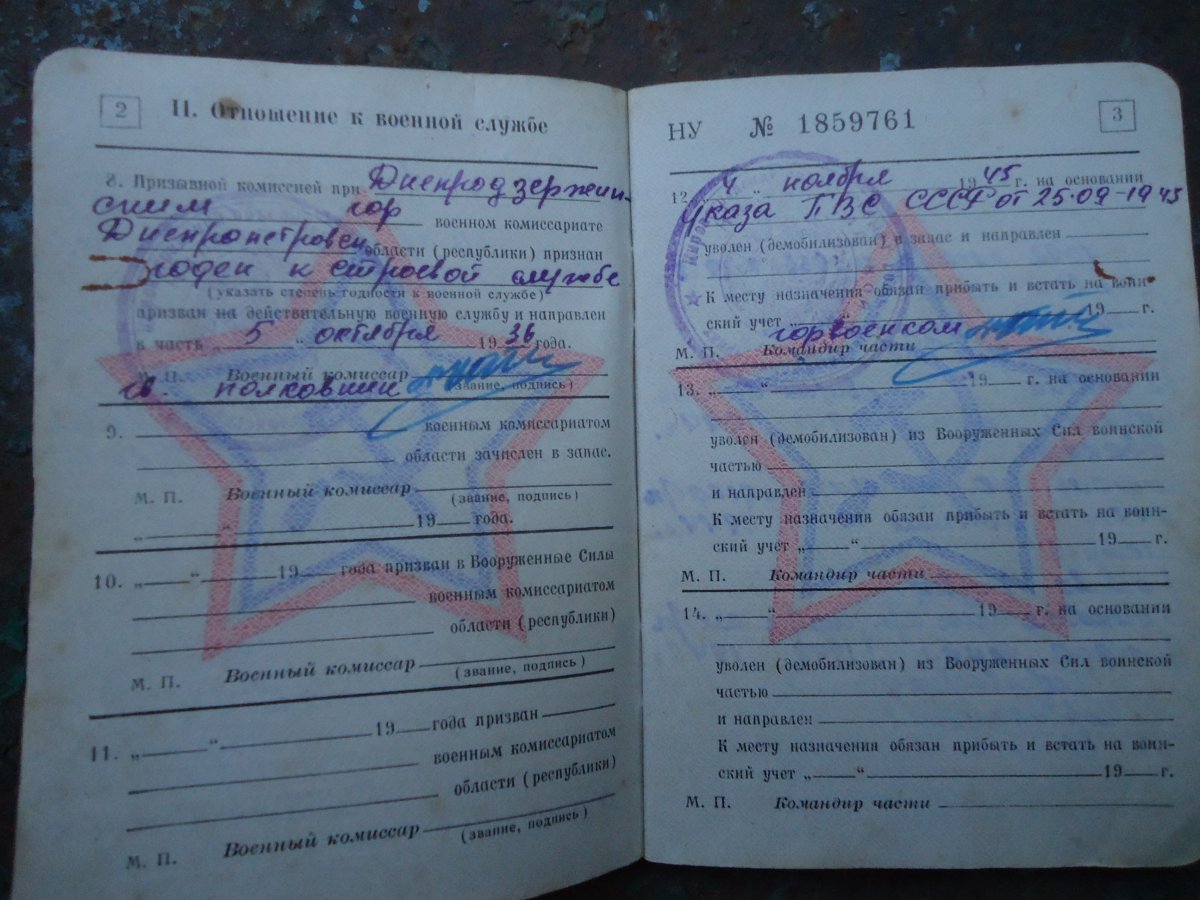 2
II. Отношение к военной службе
8. Призывной комиссией при Днепродзержин-
ским гор военном комиссариате
Днепропетровск области (республики) признан
годен к строевой службе
(указать степень годности к военной службе)
призван на действительную военную службу и направлен
в часть „ 5 “ октября 1936 года.
М. П. Военный комиссар
(звание, подпись)
9. военным комиссариатом
области зачислен в запас.
М. П. Военный комиссар
(звание, подпись)
„ “ 19 года.
10. „ “ 19 года призван в Вооруженные Силы
военным комиссариатом
области (республики)
М. П. Военный комиссар
(звание, подпись)
11. „ “ 19 года призван
военным комиссариатом
области (республики)
М. П. Военный комиссар
(звание, подпись)
НУ № 1859761
3
12. „ 4 “ ноября 1945 г. на основании
Указа ПВС СССР от 25.09-1945
уволен (демобилизован) в запас и направлен
К месту назначения обязан прибыть и встать на воин-
ский учет „ “ 19 г.
горвоенком
М. П. Командир части
13. „ “ 19 г. на основании
уволен (демобилизован) из Вооруженных Сил воинской
частью
и направлен
К месту назначения обязан прибыть и встать на воин-
ский учет „ “ 19 г.
М. П. Командир части
14. „ “ 19 г. на основании
уволен (демобилизован) из Вооруженных Сил воинской
частью
и направлен
К месту назначения обязан прибыть и встать на воин-
ский учет „ “ 19 г.
М. П. Командир части